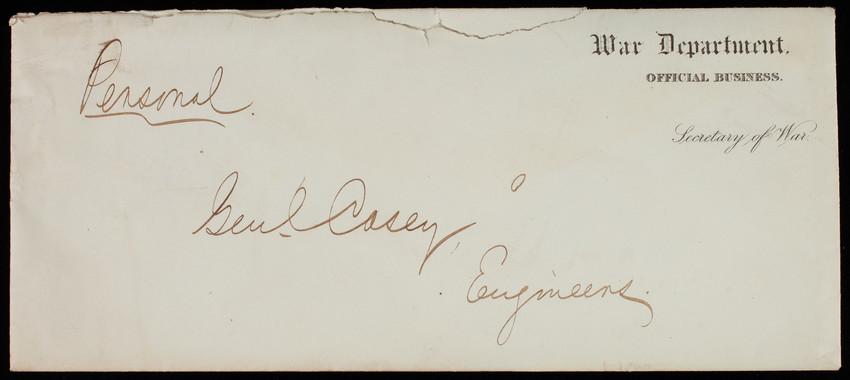 War Department.
OFFICIAL BUSINESS.
Secretary of War.
Personal.
Genl. Casey,
Engineers.